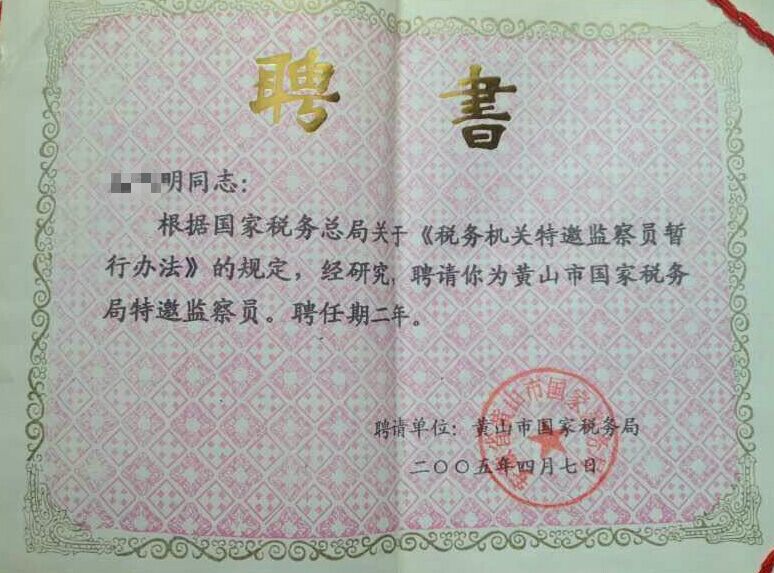 聘书
明同志：
根据国家税务总局关于《税务机关特邀监察员暂
行办法》的规定，经研究，聘请你为黄山市国家税务
局特邀监察员。聘任期二年。
聘请单位：黄山市国家税务局
二〇〇五年四月七日